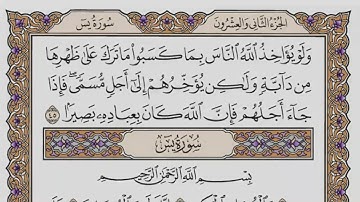 الجزء الثاني والعشرون
سورة يس
وَلَوْ يُؤَاخِذُ ٱللَّهُ ٱلنَّاسَ بِمَا كَسَبُوا۟ مَا تَرَكَ عَلَىٰ ظَهْرِهَا
مِن دَآبَّةٍ وَلَٰكِن يُؤَخِّرُهُمْ إِلَىٰٓ أَجَلٍ مُّسَمًّى ۖ فَإِذَا
جَآءَ أَجَلُهُمْ فَإِنَّ ٱللَّهَ كَانَ بِعِبَادِهِۦ بَصِيرًۢا ٤٥
سورة يس
بِسْمِ ٱللَّهِ ٱلرَّحْمَٰنِ ٱلرَّحِيمِ